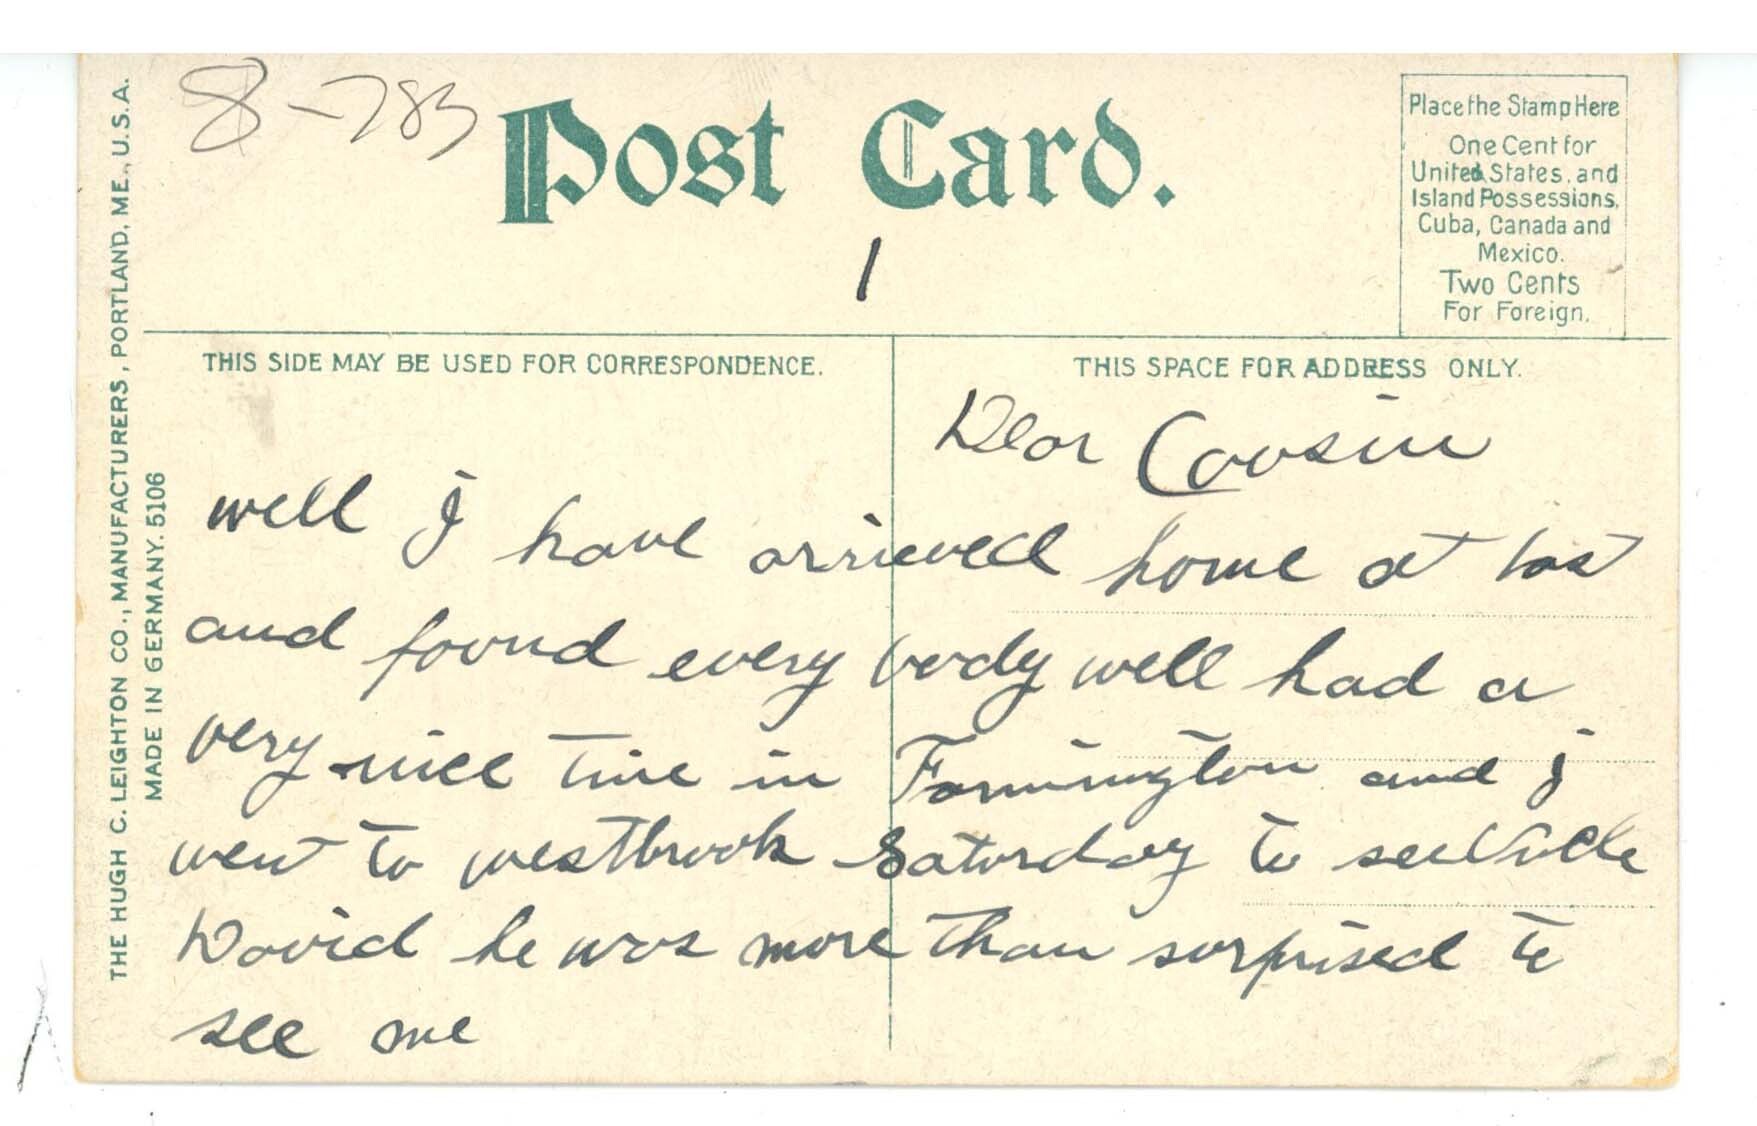 8-783
Post Card.
1
Place the Stamp Here
One Cent for
United States, and
Island Possessions,
Cuba, Canada and
Mexico.
Two Cents
For Foreign.
THE HUGH C. LEIGHTON CO., MANUFACTURERS, PORTLAND, ME., U.S.A.
MADE IN GERMANY. 5106
THIS SIDE MAY BE USED FOR CORRESPONDENCE.
THIS SPACE FOR ADDRESS ONLY.
Dear Cousin
well I have arrieved home at last
and found every body well had a
very nice time in Farmington and I
went to westbrook Saturday to see Uncle
David he was more than surprised to
see me